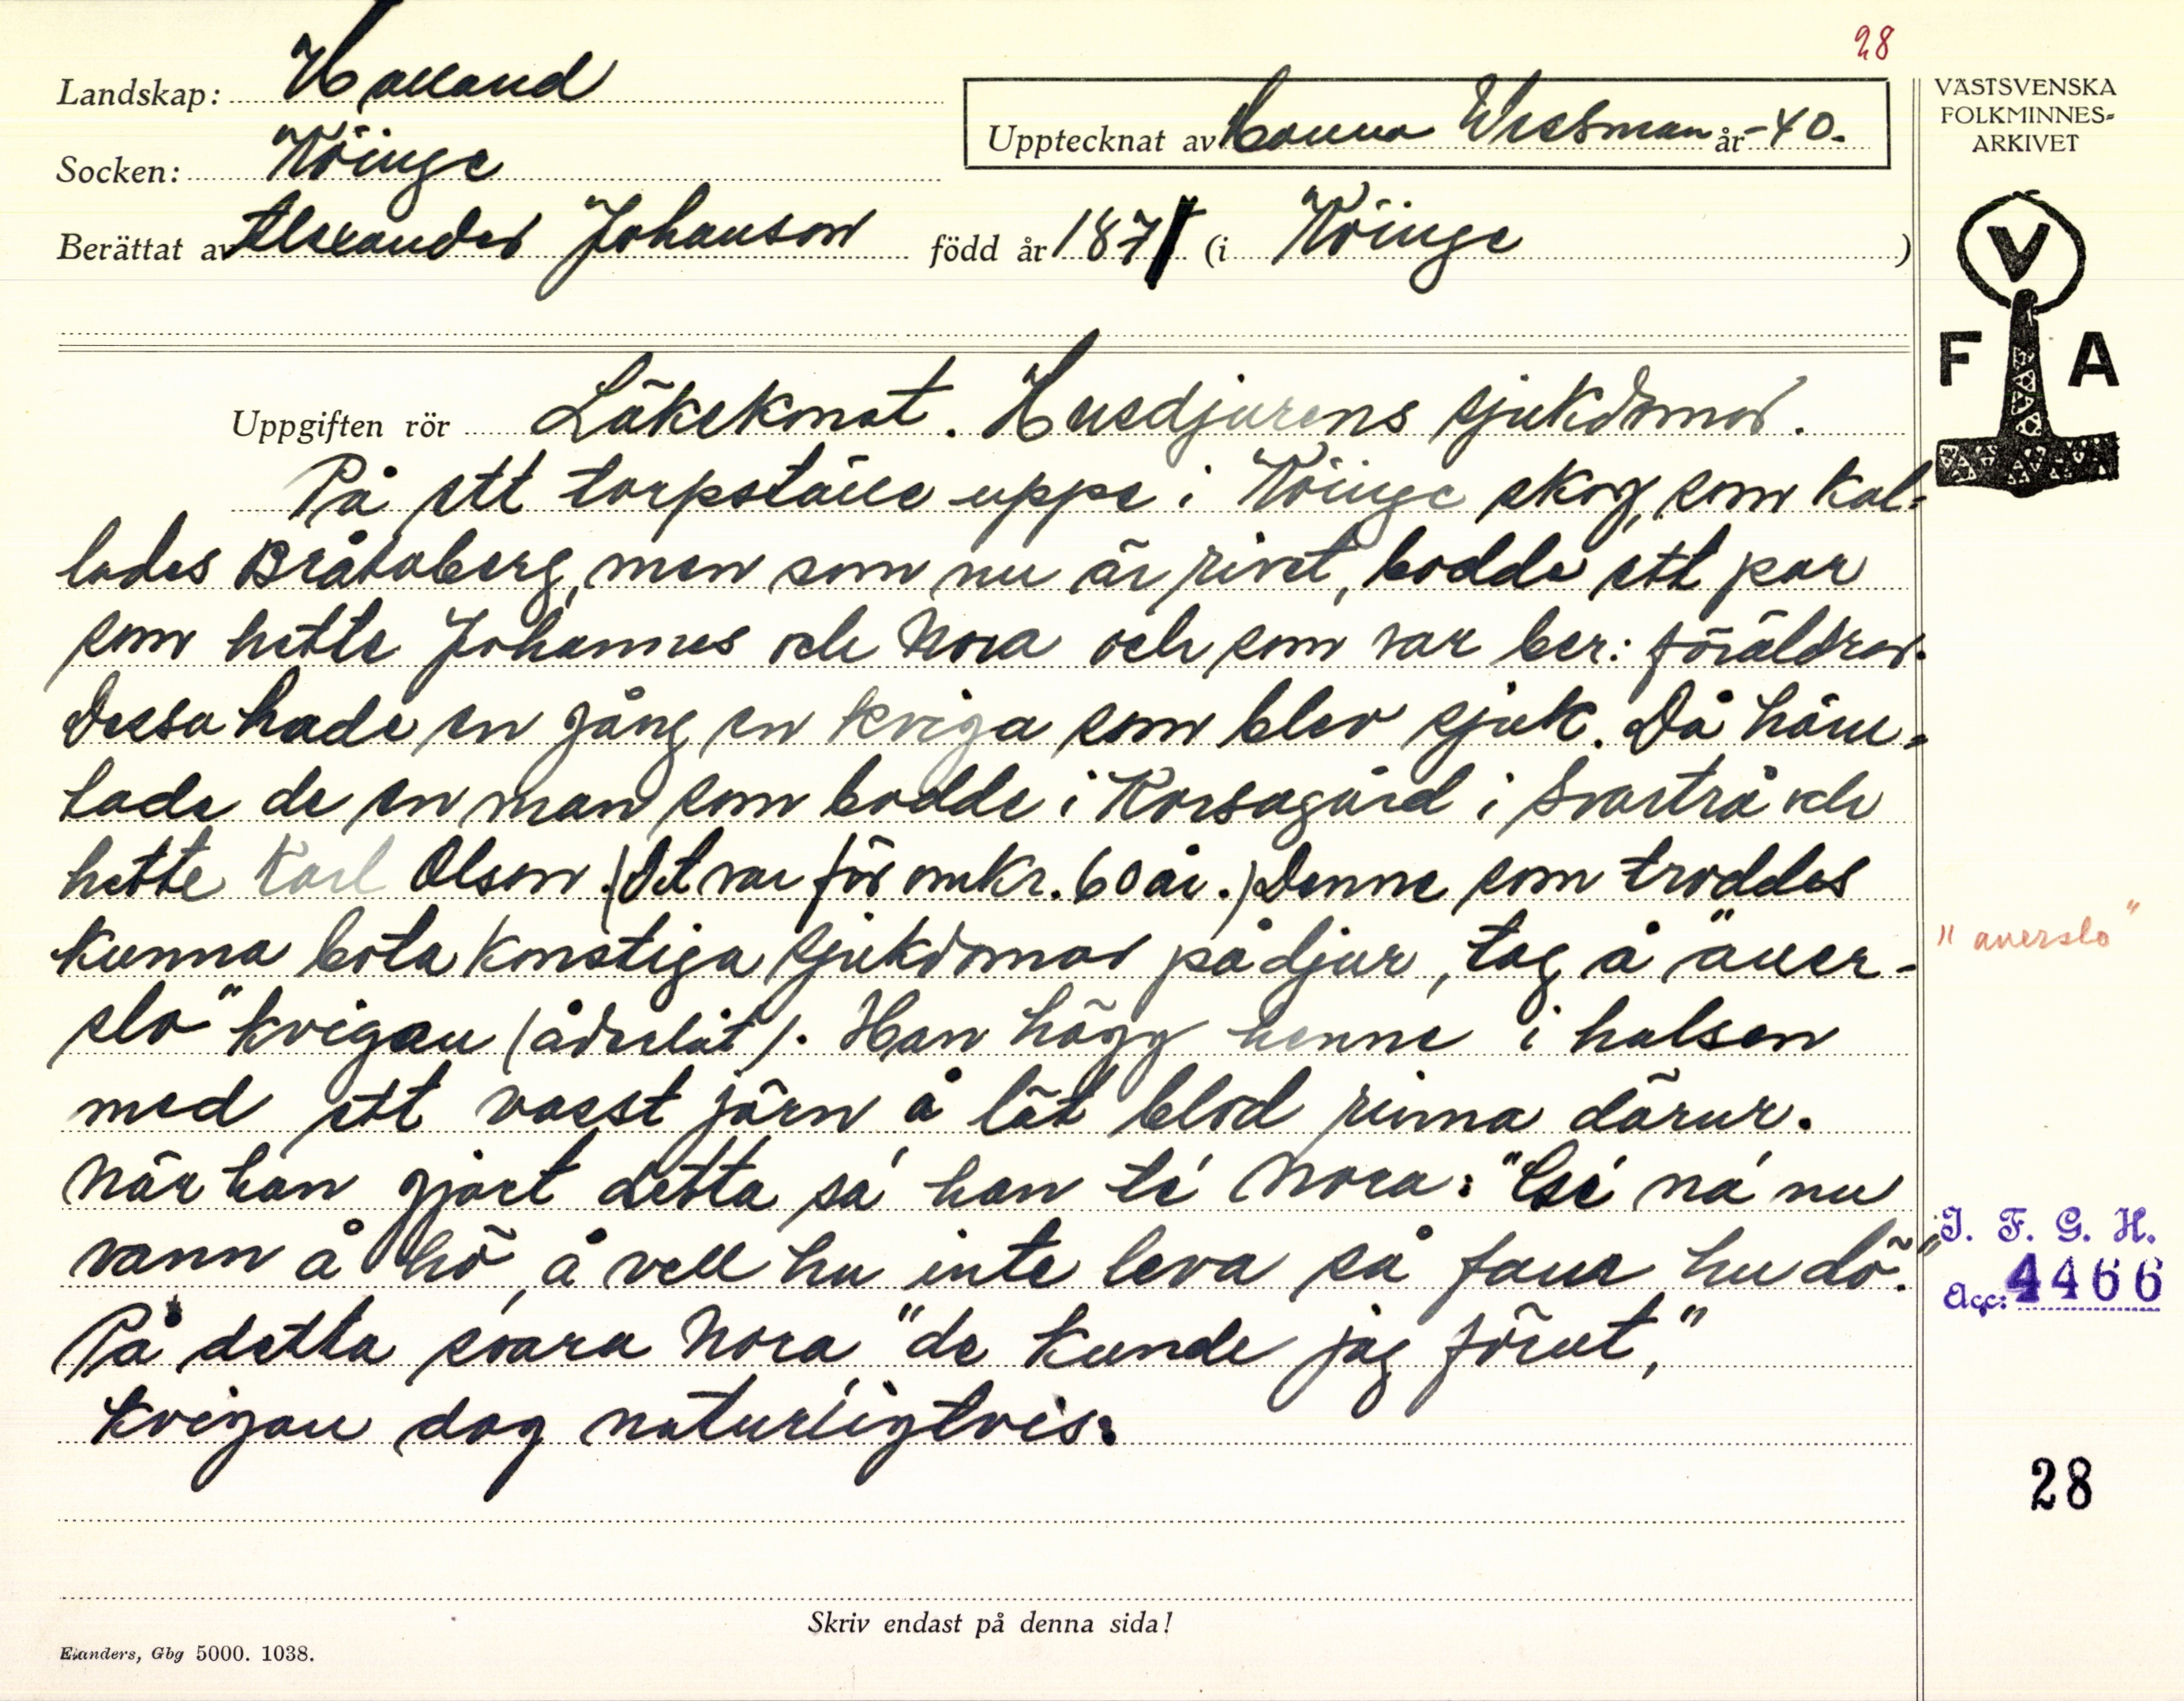 28
Landskap: Halland
Upptecknat av Hanna Wessman år -40.
Socken: Köinge
Berättat av Alexander Johanson född år 1871 (i Köinge )
VÄSTSVENSKA
FOLKMINNES=
ARKIVET
V
F A
Uppgiften rör Läkekonst. Husdjurens sjukdomar.
På ett torpställe uppe i Köinge skog, som kal=
lades Bråtaberg, men som nu är rivet, bodde ett par
som hette Johannes och Nora och som var ber: föräldrar.
Dessa hade en gång en kviga som blev sjuk. Då häm=
tade de en man som bodde i Korsagård i Svartrå och
hette Karl Olson. (Det var för omkr. 60 år.) Denne som troddes
kunna bota konstiga sjukdomar på djur, tog å "åuer-
slo" kvigan (åderlät). Han högg henne i halsen
med ett vasst järn å lät blod rinna därur.
När han gjort detta sa' han té Nora: "Gé na' nu
vann å hö, å vell hu inte leva så faur hu dö."
På detta svara Nora "de kunde jag förut,"
Kvigan dog naturligtvis.
"auerslo"
I. F. G. H.
Acc: 4466
28
Skriv endast på denna sida!
Elanders, Gbg 5000. 1038.